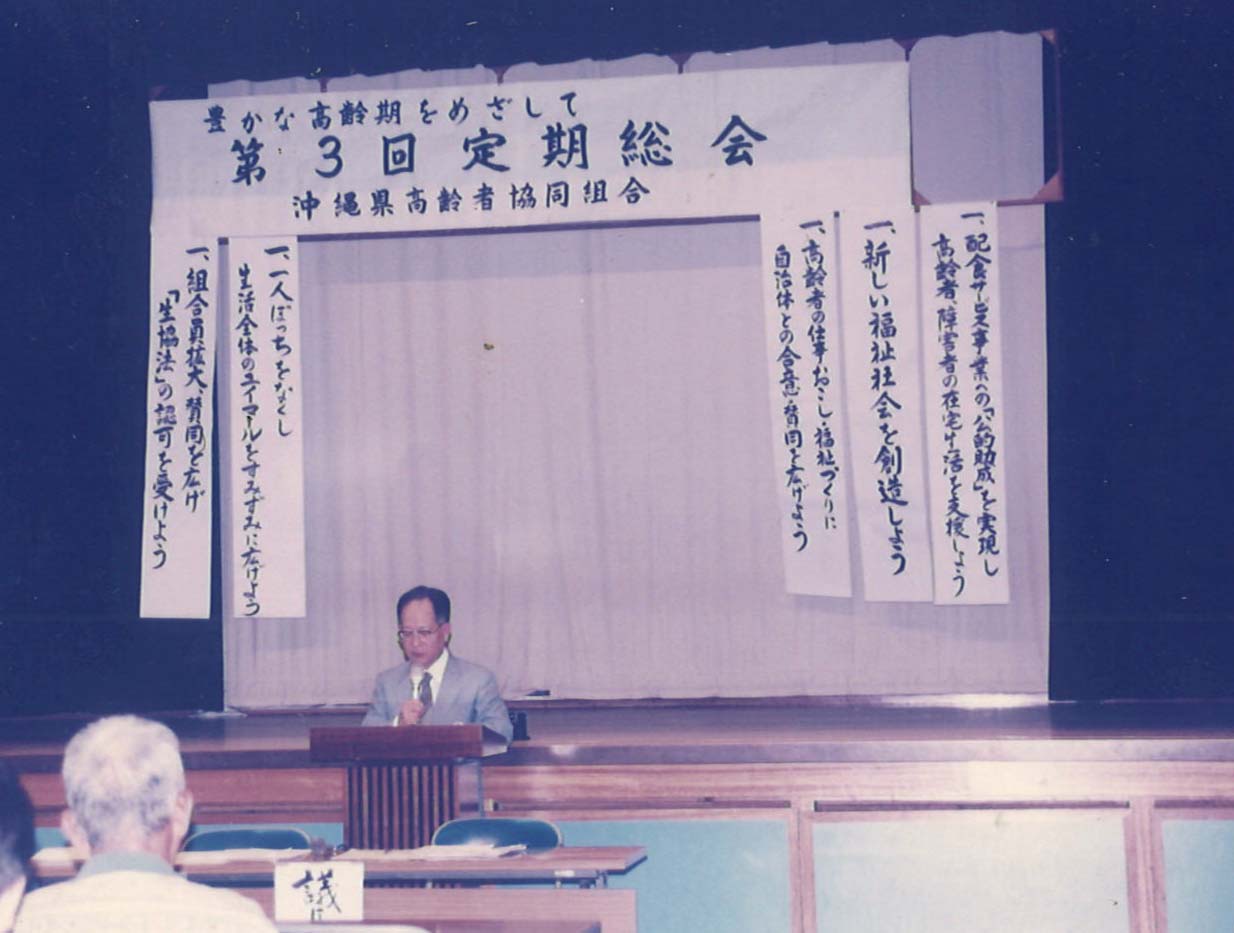 豊かな高齢期をめざして
第3回定期総会
沖縄県高齢者協同組合
一、配食サービス事業への「公的助成」を実現し
高齢者、障害者の在宅生活を支援しよう
一、新しい福祉社会を創造しよう
一、高齢者の仕事おこし・福祉づくりに
自治体との合意・賛同を広げよう
一、一人ぼっちをなくし
生活全体のユイマールをすみずみに広げよう
一、組合員拡大、賛同を広げ
「生協法」の認可を受けよう
議